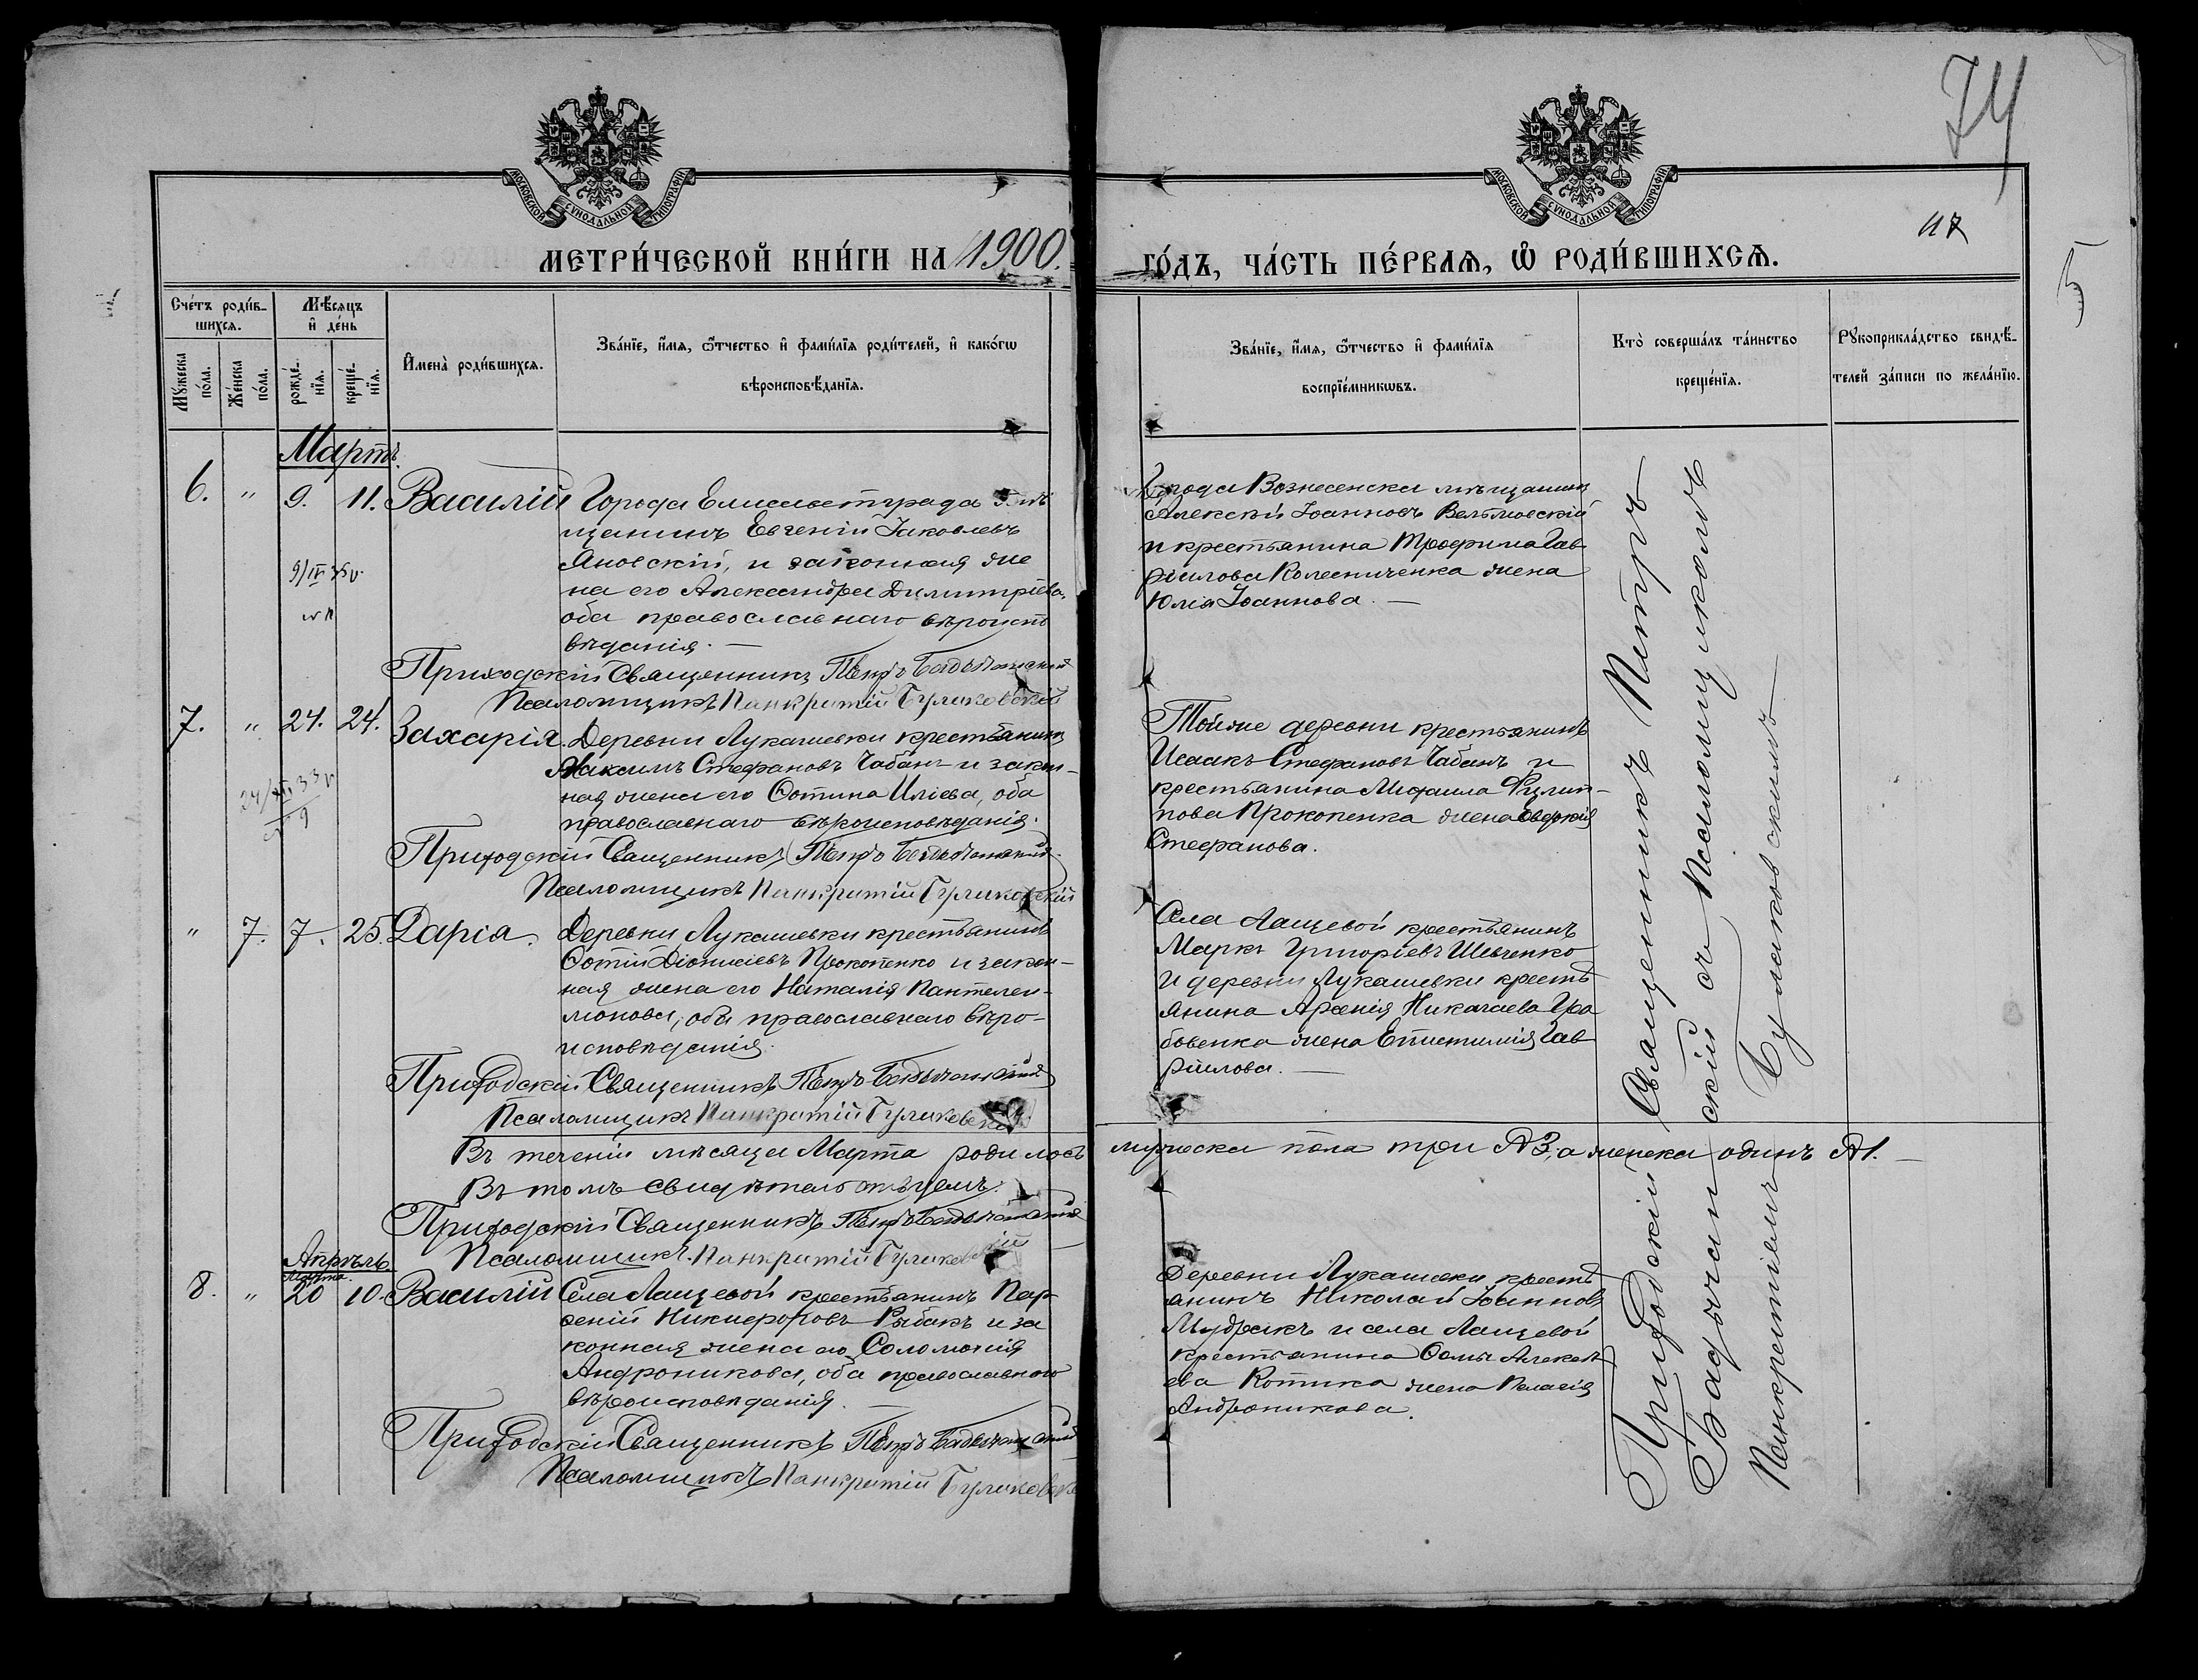 74
117
5
МОСКОВСКОЙ СУНОДАЛЬНОЙ ТИПОГРАФІИ
МОСКОВСКОЙ СУНОДАЛЬНОЙ ТИПОГРАФІИ
МЕТРИ́ЧЕСКОЙ КНИ́ГИ НА 1900.
ГО́ДЪ, ЧА́СТЬ ПЕ́РВАѦ, Ѡ РОДИ́ВШИХСѦ.
Сче́тъ роди́в-
шихсѧ.
Мѣ́сѧцъ
и҆ де́нь
Мꙋжеска по́ла.
Же́нска по́ла.
рожде́-
нїѧ.
креще́-
нїѧ.
И҆мена̀ роди́вшихсѧ.
Зва́нїе, и҆́мѧ, ѻ҆́тчество и҆ фами́лїѧ роди́телей, и҆ како́гѡ
вѣроисповѣ́данїѧ.
Зва́нїе, и҆́мѧ, ѻ҆́тчество и҆ фами́лїѧ
воспрїе́мникѡвъ.
Кто̀ соверша́лъ та́инство
креще́нїѧ.
Рꙋкоприкла́дство свидѣ́-
телей за́писи по жела́нїю.
Мартъ.
6. " 9. 11. Василій Города Елисаветграда мѣ
щанинъ Евгеній Іаковлевъ
Яновскій, и законная же
на его Александра Димитріева,
оба православнаго вѣроиспо
вѣданія. —
Приходскій Священникъ Петръ
Псаломщикъ Панкратій Булаковскій
Города Вознесенска мѣщанинъ
Алексѣй Іоанновъ
и крестьянина Трофима Гав
ріилова Колесниченка жена
Юлія Іоаннова. —
7. " 24. 24. Захарія. Деревни Лукашевки крестьянинъ
Максимъ Стефановъ Чабанъ и закон-
ная жена его Фотина Иліева, оба
православнаго вѣроисповѣданія.
Приходскій Священникъ Петръ
Псаломщикъ Панкратій Булаковскій
Той же деревни крестьянинъ
Исаакъ Стефановъ Чабанъ и
крестьянина Михаила Филип-
пова Прокопенка жена Евдокія
Стефанова.
" 7. 7. 25. Дарія. Деревни Лукашевки крестьянинъ
Фотій Діонисіевъ Прокопенко и закон-
ная жена его Наталія Пантелеи-
монова, оба православнаго вѣро-
исповѣданія.
Приходскій Священникъ Петръ
Псаломщикъ Панкратій Булаковскій
Села Лащевой крестьянинъ
Маркъ Григоріевъ Шевченко
и деревни Лукашевки кресть
янина Арсенія Николаева Гра
бовенка жена Епистимія Гав
ріилова. —
Въ теченіи мѣсяца Марта родилось мужеска пола три № 3, а женска одинъ № 1. —
Въ томъ свидѣтельствуемъ:
Приходскій Священникъ Петръ
Псаломщикъ Панкратій Булаковскій
Апрѣль.
Марта.
8. " 20 10. Василій Села Лащевой крестьянинъ Пар
ѳеній Никифоровъ Рыбакъ и за
конная жена его Соломонія
Андроникова, оба православнаго
вѣроисповѣданія. —
Приходскій Священникъ Петръ
Псаломщикъ Панкратій Булаковскі
Деревни Лукашевки кресть
янинъ Николай Іоанновъ
Мудракъ и села Лащевой
крестьянина Ѳомы Алексѣ
ева Котика жена Пелагія
Андроникова.
Приходскій Священникъ Петръ
Бадычанскій съ Псаломщикомъ
Панкратіемъ Булаковскимъ —